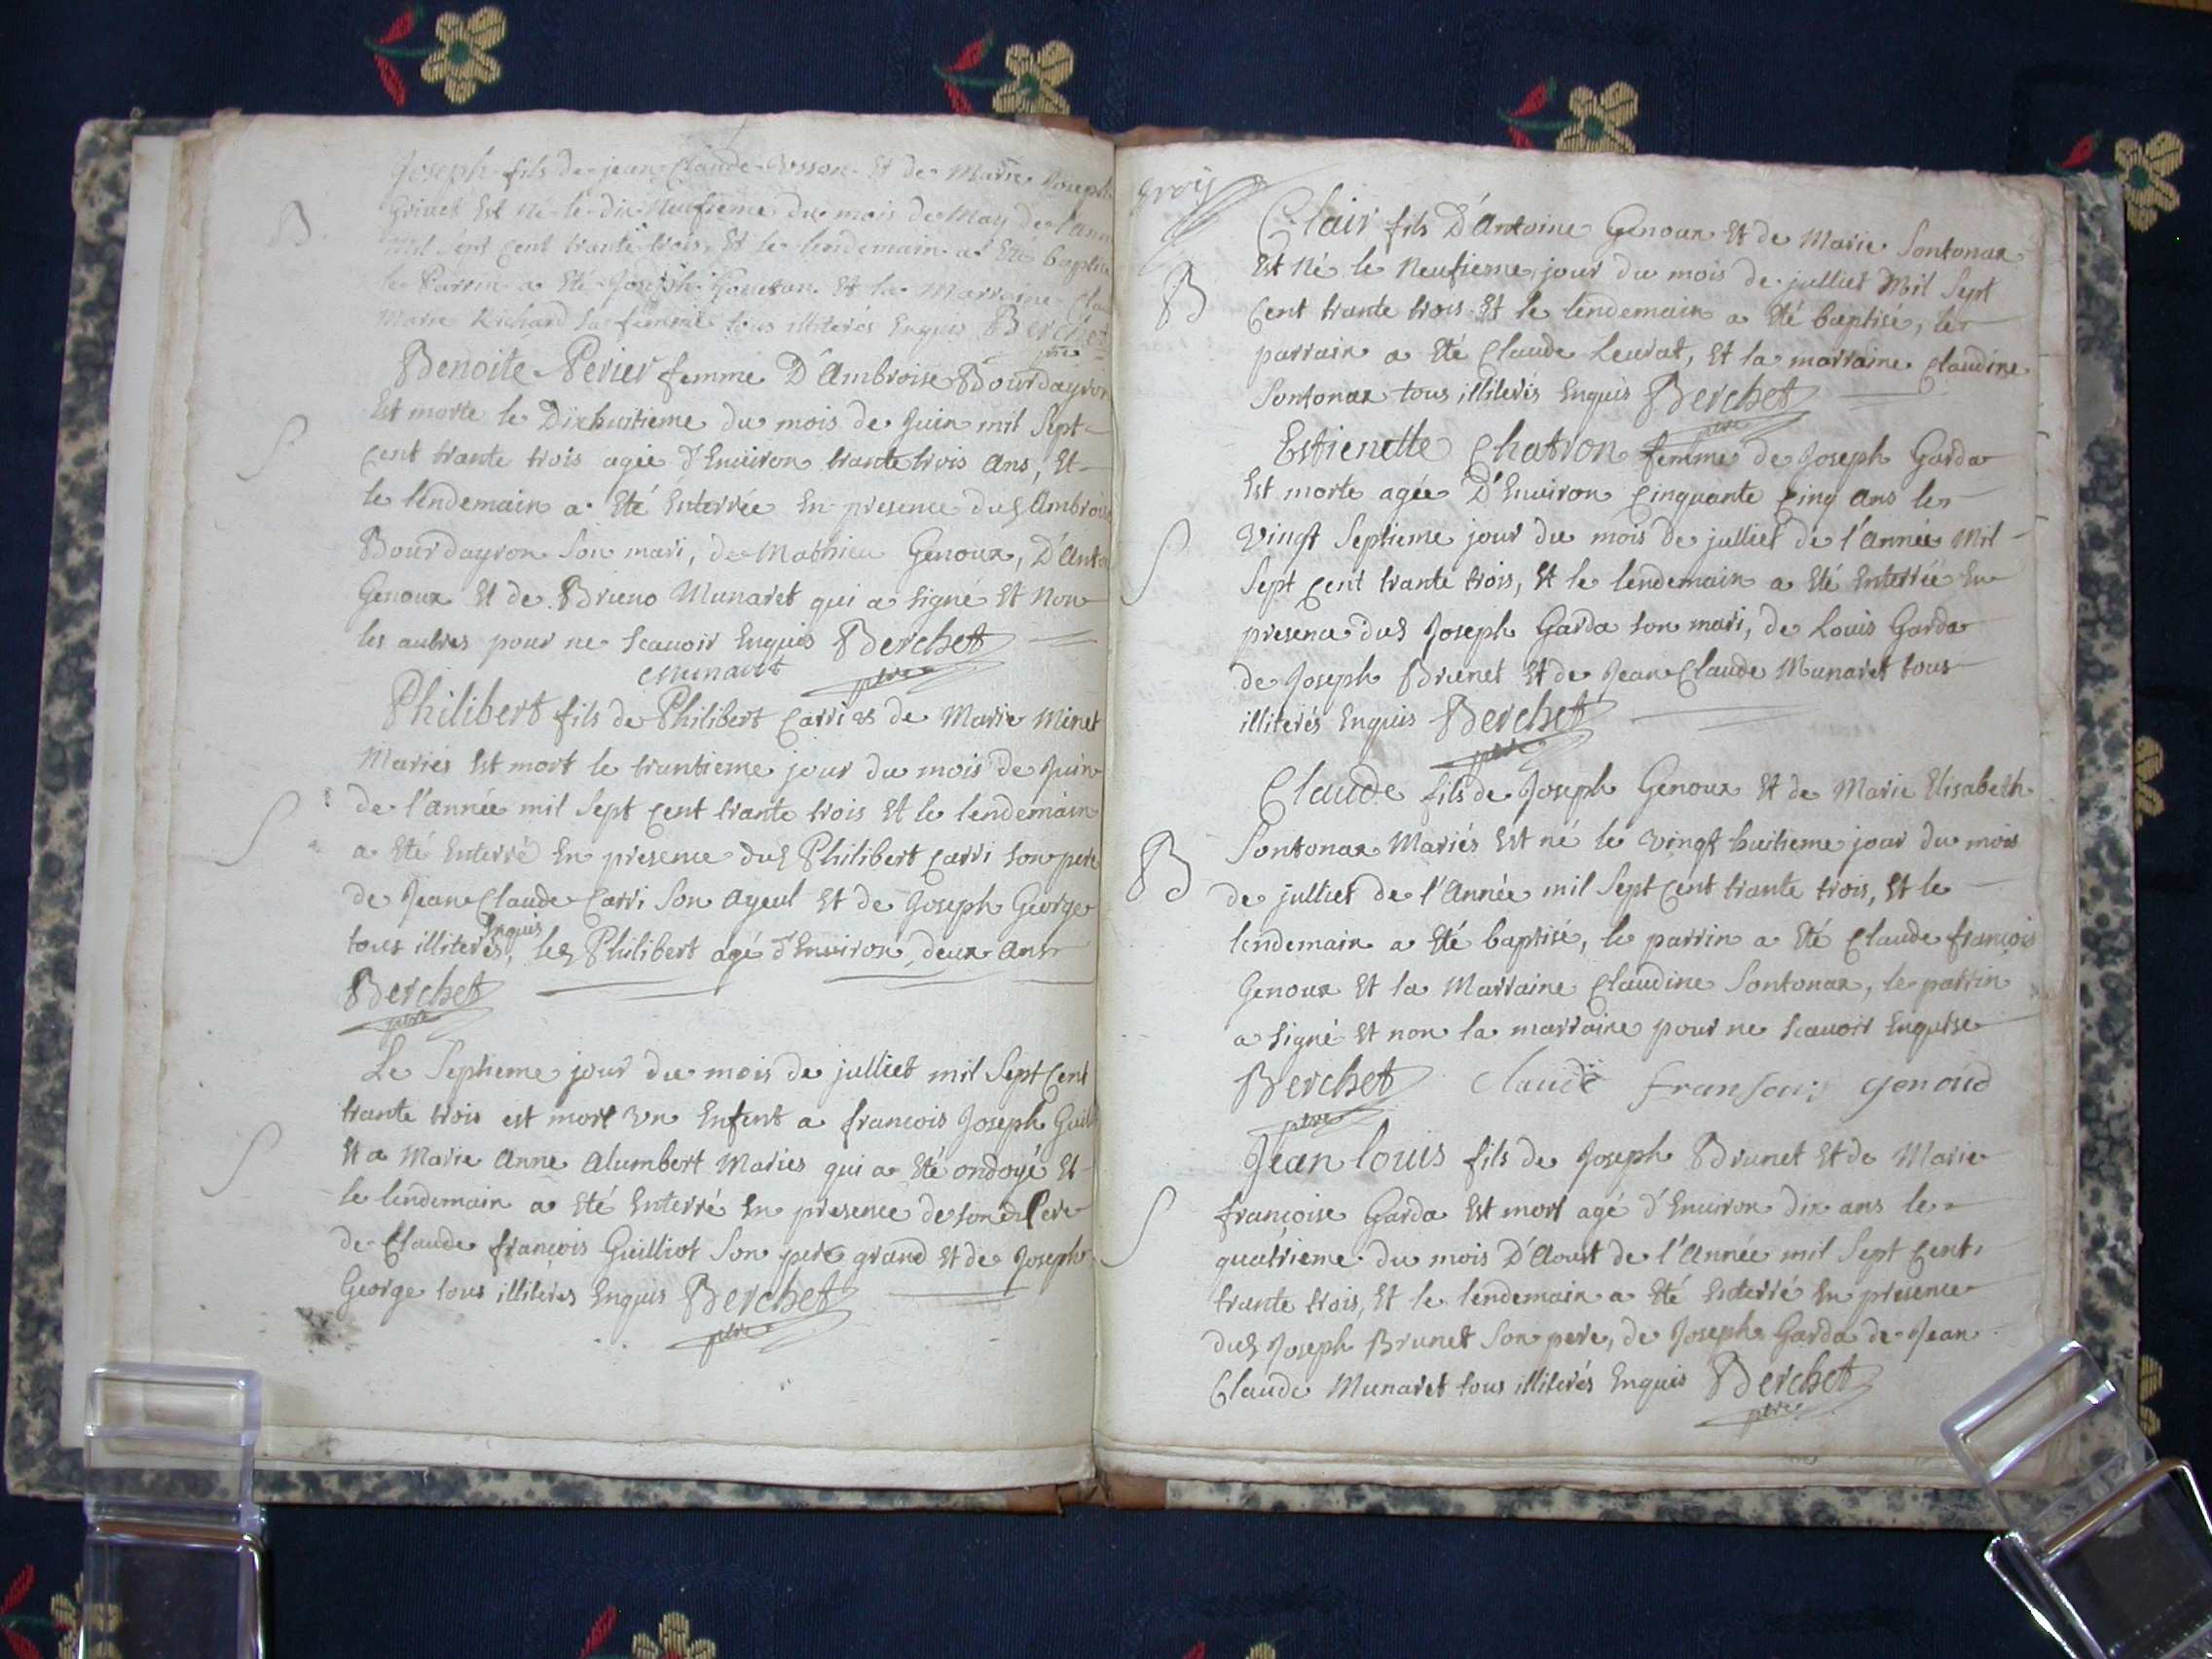 B.
Joseph fils de jean Claude Et de Marie Joseph
Est Né le dix Neufieme du mois de May de l'ann
mil Sept Cent trante trois, Et le lendemain a Eté baptisé
le Parrin a Eté Joseph Et la Marraine
Marie Richard sa femme tous illiterés Enquis Berchet
ptre
S
Benoite Perier femme D'Ambroise Bourdayron
Est morte le Dixhuitieme du mois de Juin mil Sept
Cent trante trois agée d'Environ trante trois Ans, Et
le lendemain a Eté Enterrée En presence dud Ambroise
Bourdayron Son mari, de Mathieu Genoux, D'Anto
Genoux Et de Bruno Munaret qui a signé Et Non
les autres pour ne Scauoir Enquis Berchet
Munaret ptre
S
Philibert fils de Philibert Carri et de Marie Minet
Mariés Est mort le trantieme jour du mois de Juin
de l'année mil Sept Cent trante trois Et le lendemain
a Eté Enterré En presence dud Philibert Carri Son pere
de Jean Claude Carri Son Ayeul Et de Joseph George
tous illiterés Enquis, led Philibert agé d'Environ deux Ans
Berchet
ptre
S
Le Septieme jour du mois de julliet mil Sept Cent
trante trois est mort Un Enfent a francois Joseph
Et a Marie Anne Alumbert Mariés qui a Eté ondoyé Et
le lendemain a Eté Enterré En presence de son d Pere
de Claude francois Guilliot Son pere grand Et de Joseph
George tous illiterés Enquis Berchet
ptre
B
Clair fils D'Antoine Genoux Et de Marie Sontonax
Est Né le Neufieme jour du mois de julliet Mil Sept
Cent trante trois Et le lendemain a Eté baptisé, le
parrain a Eté Claude Leurat, Et la marraine Claudine
Sontonax tous illiterés Enquis Berchet
ptre
S
Estienette Chatron femme de Joseph Garda
Est morte agée D'Environ Cinquante Cinq Ans le
Vingt Septieme jour du mois de julliet de l'Année Mil
Sept Cent trante trois, Et le lendemain a Eté Enterrée En
presence dud Joseph Garda son mari, de Louis Garda
de Joseph Brunet Et de Jean Claude Munaret tous
illiterés Enquis Berchet
ptre
B
Claude fils de Joseph Genoux Et de Marie Elisabeth
Sontonax Mariés Est né le Vingt huitieme jour du mois
de julliet de l'Année mil Sept Cent trante trois, Et le
lendemain a Eté baptisé, le parrin a Eté Claude francois
Genoux Et la Marraine Claudine Sontonax, le parrin
a signé Et non la marraine pour ne Scauoir Enquise
Berchet Claude Fransois genoud
ptre
S
Jean louis fils de Joseph Brunet Et de Marie
françoise Garda Est mort agé d'Enuiron dix ans le
quatrieme du mois D'Aoust de l'Année mil Sept Cent
trante trois, Et le lendemain a Eté Enterré En presence
dud Joseph Brunet Son pere, de Joseph Garda de Jean
Claude Munaret tous illiterés Enquis Berchet
ptre